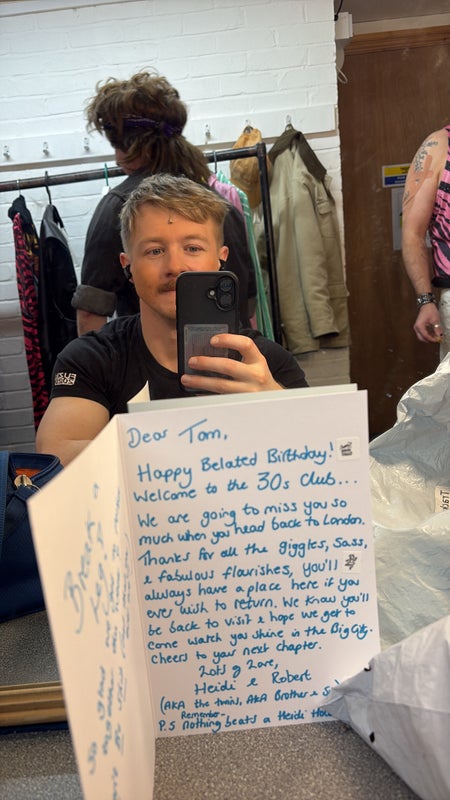 Dear Tom,
Happy Belated Birthday!
Welcome to the 30s Club...
We are going to miss you so
much when you head back to London.
Thanks for all the giggles, Sass,
& fabulous flourishes, you'll
always have a place here if you
ever wish to return. We know you'll
be back to visit & hope we get to
come watch you shine in the Big City.
Cheers to your next chapter.
Lots of Love,
Heidi & Robert
(AKA the twins, AKA Brother & S
Remember-
P.S Nothing beats a Heidi
Break a
Leg!